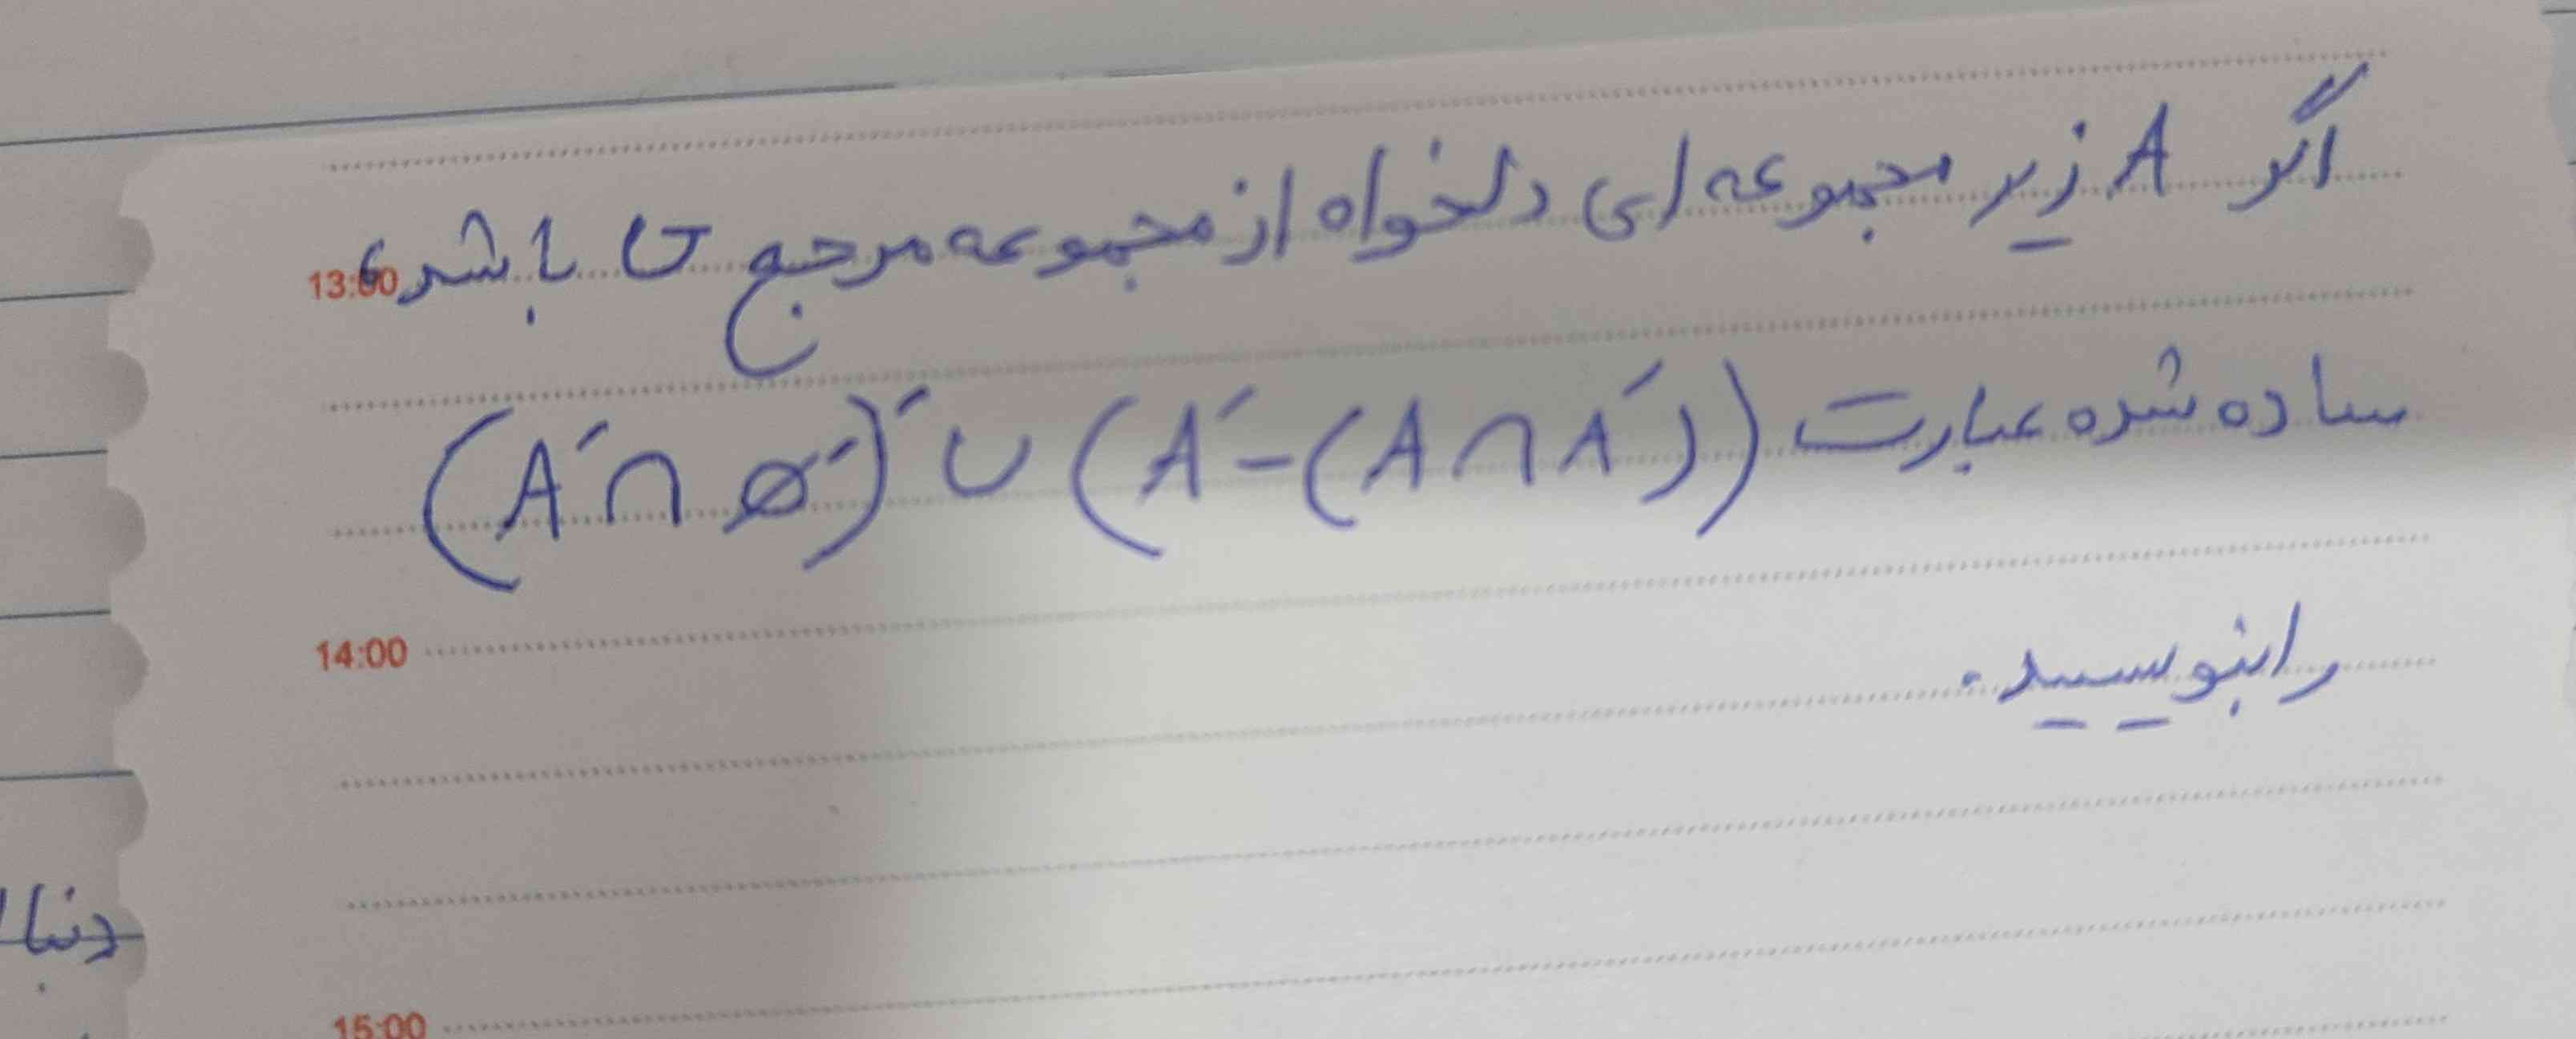 اگر A زیر مجموعه ای دلخواه از مجموعه مرجع U باشد،
13:00
ساده شده عبارت (A′∩∅′)′∪(A′−(A∩A′))
14:00
را بنویسید.
دنبا
15:00